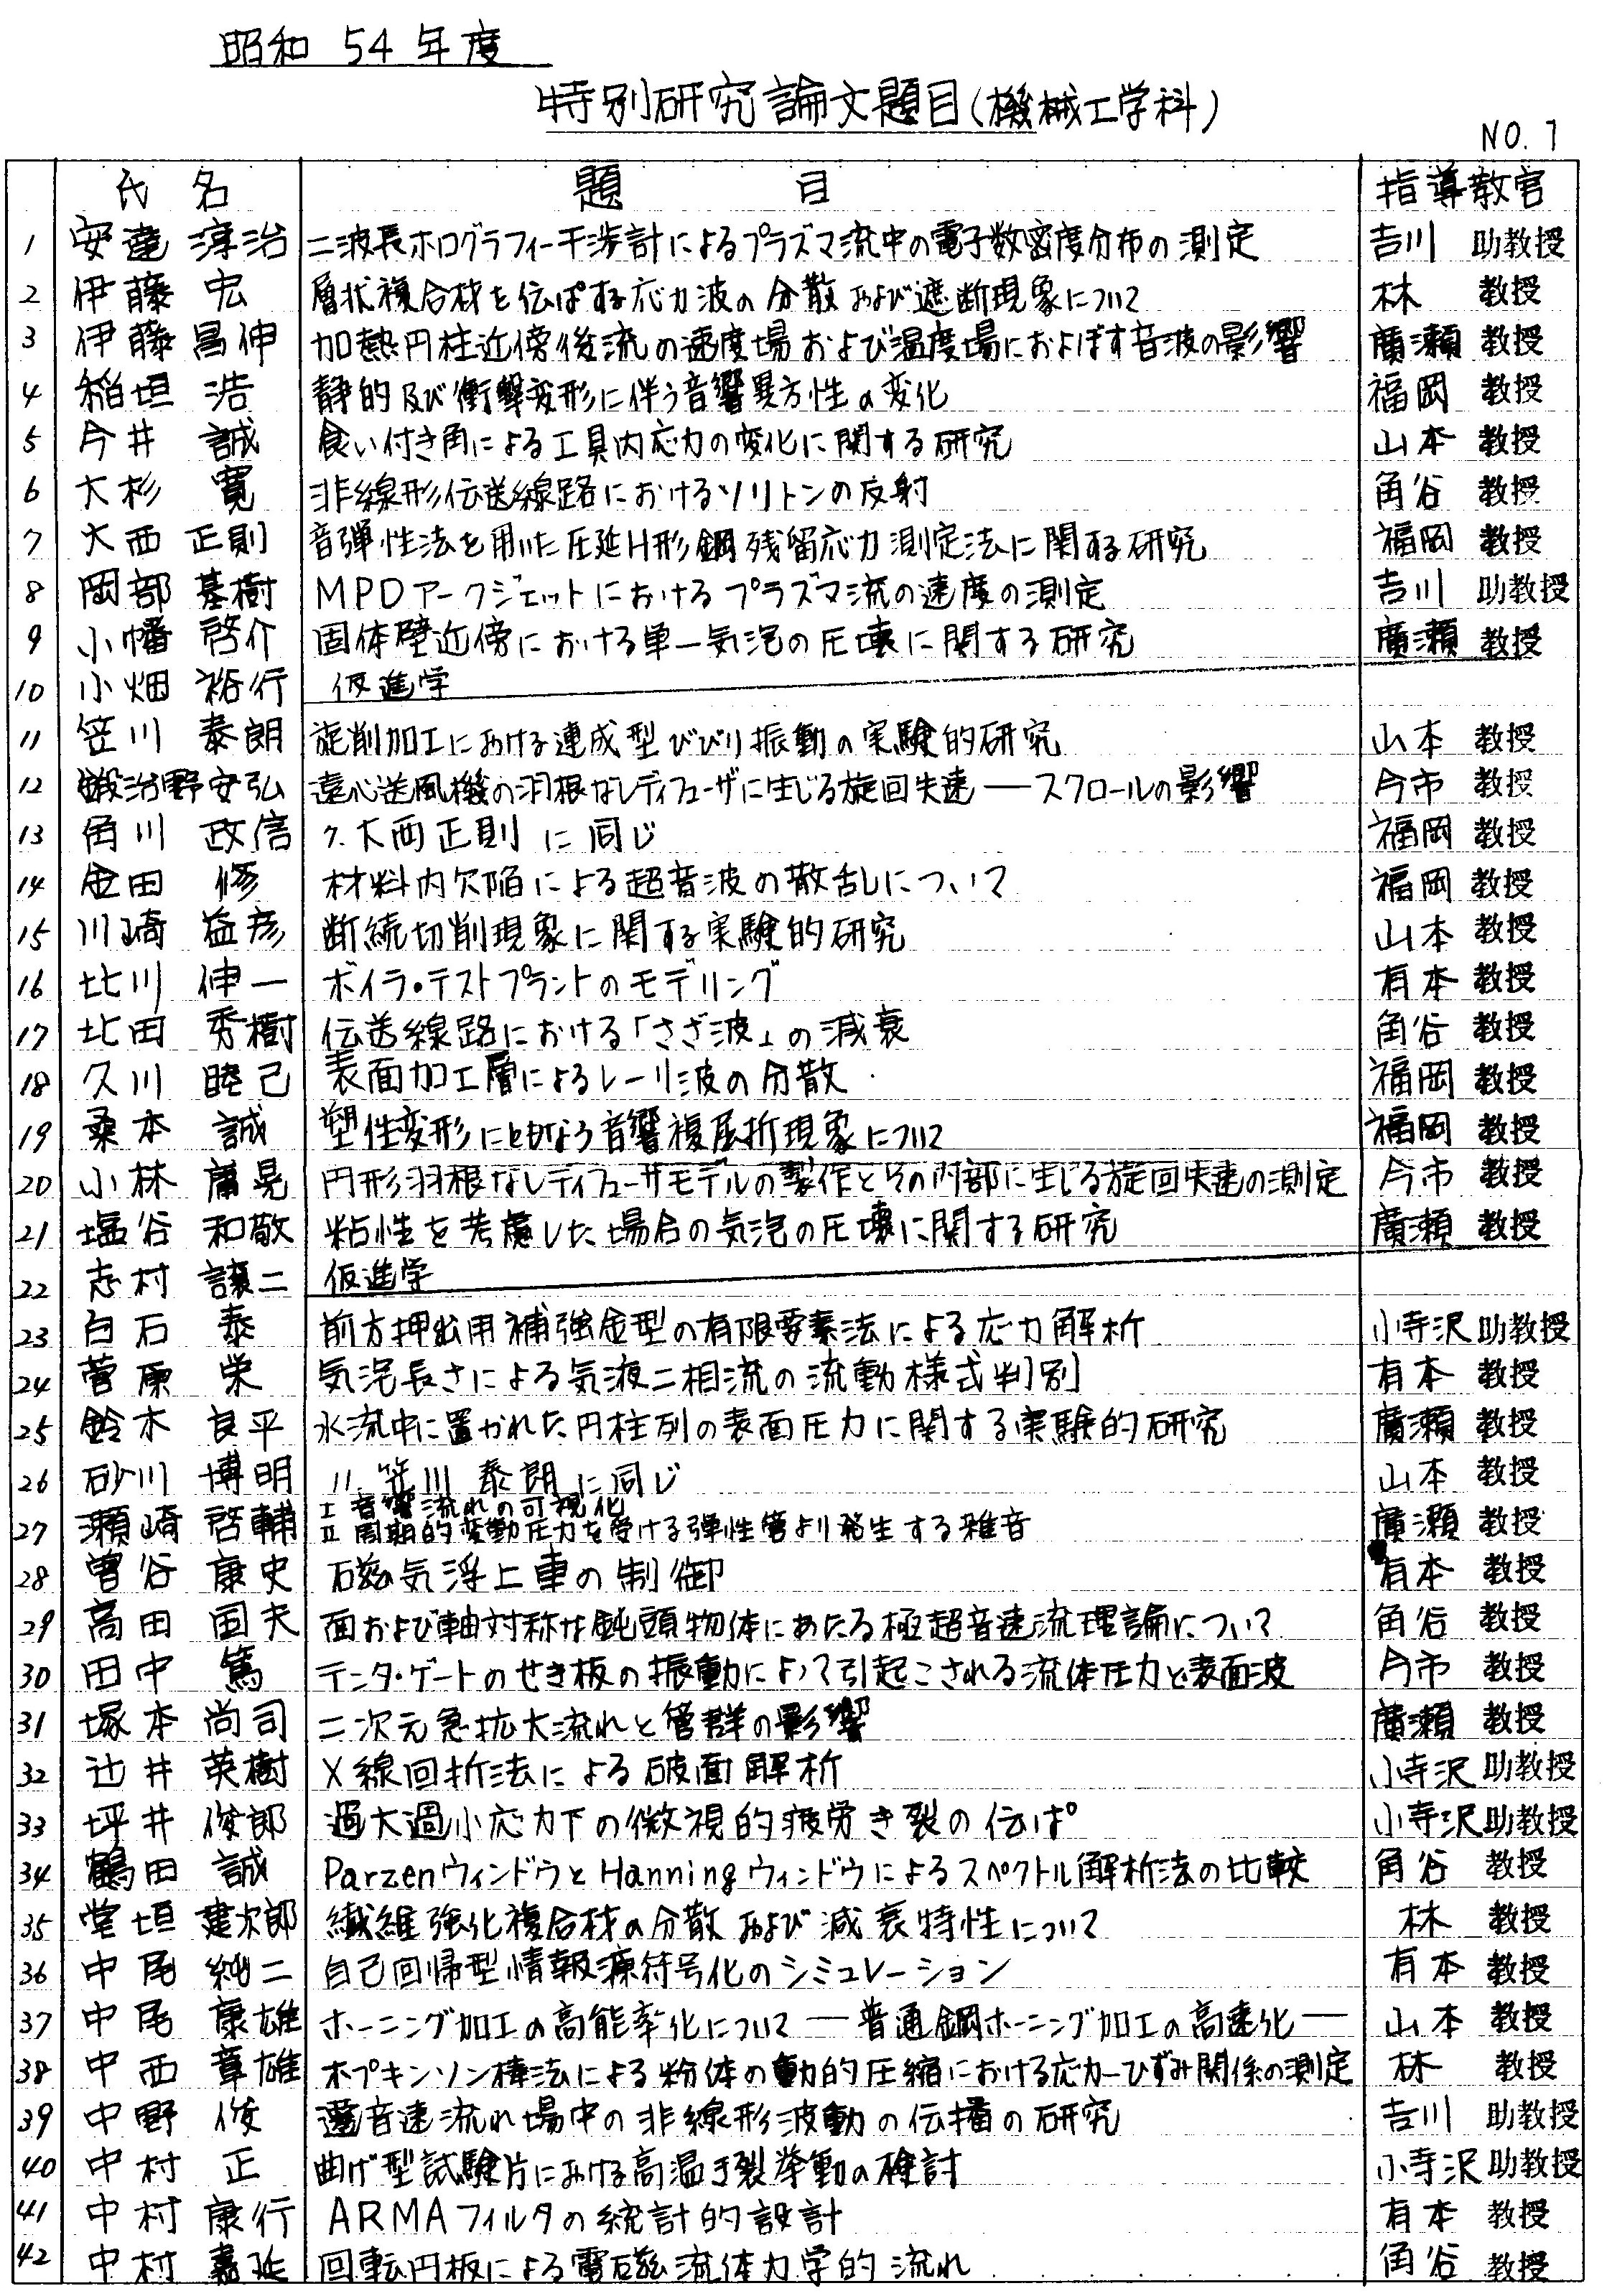 昭和 54 年度
特別研究論文題目(機械工学科)
NO. 1
氏 名 題 目 指導教官
1 安達 淳治 二波長ホログラフィー干渉計によるプラズマ流中の電子数密度分布の測定 吉川 助教授
2 伊藤 宏 層状複合材を伝ぱする応力波の分散および遮断現象について 林 教授
3 伊藤 昌伸 加熱円柱近傍後流の速度場および温度場におよぼす音波の影響 廣瀬 教授
4 稲垣 浩 静的及び衝撃変形に伴う音響異方性の変化 福岡 教授
5 今井 誠 食い付き角による工具内応力の変化に関する研究 山本 教授
6 大杉 寛 非線形伝送線路におけるソリトンの反射 角谷 教授
7 大西 正則 音弾性法を用いた圧延H形鋼残留応力測定法に関する研究 福岡 教授
8 岡部 基樹 MPDアークジェットにおけるプラズマ流の速度の測定 吉川 助教授
9 小幡 啓介 固体壁近傍における単一気泡の圧壊に関する研究 廣瀬 教授
10 小畑 裕行 仮進学
11 笠川 泰朗 旋削加工における連成型びびり振動の実験的研究 山本 教授
12 鍛治野 安弘 遠心送風機の羽根なしディフューザに生じる旋回失速 ― スクロールの影響 今市 教授
13 角川 政信 7. 大西正則 に同じ 福岡 教授
14 金田 修 材料内欠陥による超音波の散乱について 福岡 教授
15 川崎 益彦 断続切削現象に関する実験的研究 山本 教授
16 北川 伸一 ボイラ・テストプラントのモデリング 有本 教授
17 北田 秀樹 伝送線路における「さざ波」の減衰 角谷 教授
18 久川 睦己 表面加工層によるレーリ波の分散 福岡 教授
19 桑本 誠 塑性変形にともなう音響複屈折現象について 福岡 教授
20 小林 庸晃 円形羽根なしディフューザモデルの製作とその内部に生じる旋回失速の測定 今市 教授
21 塩谷 和敬 粘性を考慮した場合の気泡の圧壊に関する研究 廣瀬 教授
22 志村 譲二 仮進学
23 白石 泰 前方押出用補強金型の有限要素法による応力解析 小寺沢 助教授
24 菅原 栄 気泡長さによる気液二相流の流動様式判別 有本 教授
25 鈴木 良平 水流中に置かれた円柱列の表面圧力に関する実験的研究 廣瀬 教授
26 砂川 博明 11. 笠川 泰朗に同じ 山本 教授
27 瀬崎 啓輔 I 音響流れの可視化
II 周期的変動圧力を受ける弾性管より発生する雑音 廣瀬 教授
28 曽谷 康史 磁気浮上車の制御 有本 教授
29 高田 国夫 面および軸対称な鈍頭物体にあたる極超音速流理論について 角谷 教授
30 田中 篤 テンタ・ゲートのせき板の振動によって引起こされる流体圧力と表面波 今市 教授
31 塚本 尚司 二次元急拡大流れと管群の影響 廣瀬 教授
32 辻井 英樹 X線回折法による破面解析 小寺沢 助教授
33 坪井 俊郎 過大過小応力下の微視的疲労き裂の伝ぱ 小寺沢 助教授
34 鶴田 誠 ParzenウィンドウとHanningウィンドウによるスペクトル解析法の比較 角谷 教授
35 堂垣 建次郎 繊維強化複合材の分散および減衰特性について 林 教授
36 中尾 純二 自己回帰型情報源符号化のシミュレーション 有本 教授
37 中尾 康雄 ホーニング加工の高能率化について ― 普通鋼ホーニング加工の高速化 ― 山本 教授
38 中西 章雄 ホプキンソン棒法による粉体の動的圧縮における応力―ひずみ関係の測定 林 教授
39 中野 俊 遷音速流れ場中の非線形波動の伝播の研究 吉川 助教授
40 中村 正 曲げ型試験片における高温き裂挙動の検討 小寺沢 助教授
41 中村 康行 ARMAフィルタの統計的設計 有本 教授
42 中村 嘉延 回転円板による電磁流体力学的流れ 角谷 教授